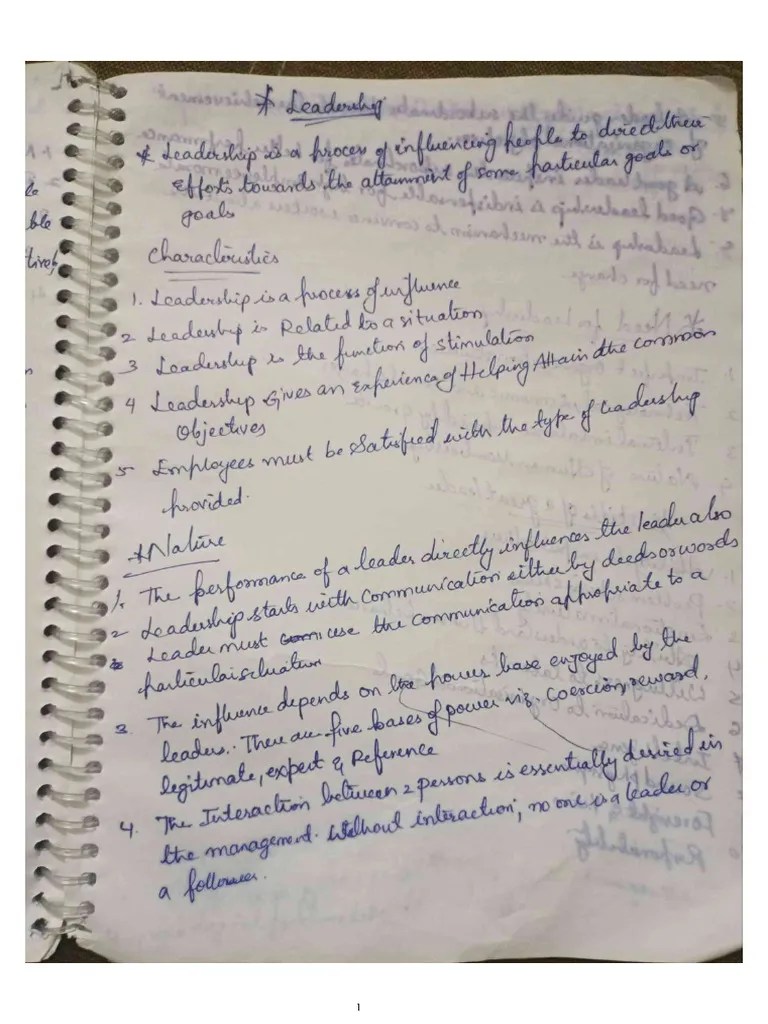 * Leadership
* Leadership is a process of influencing people to direct their
efforts towards the attainment of some particular goals or
goals
Characteristics
1. Leadership is a process of influence
2 Leadership is Related to a situation
3 Leadership is the function of stimulation
4 Leadership Gives an Experience of Helping Attain the common
Objectives
5. Employees must be Satisfied with the type of leadership
provided.
* Nature
1. The performance of a leader directly influences the leader also
2 Leadership starts with communication either by deeds or words
Leader must use the communication appropriate to a
particular situation
3. The influence depends on the power base enjoyed by the
leaders. There are five bases of power viz. coercion, reward,
legitimate, expert & Reference
4. The Interaction between 2 persons is essentially desired in
the management. Without interaction, no one is a leader or
a follower.
1